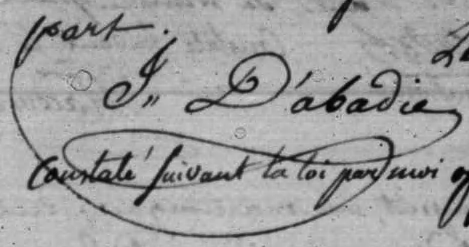 part.
J,, D'abadie
Constaté suivant la loi par moi